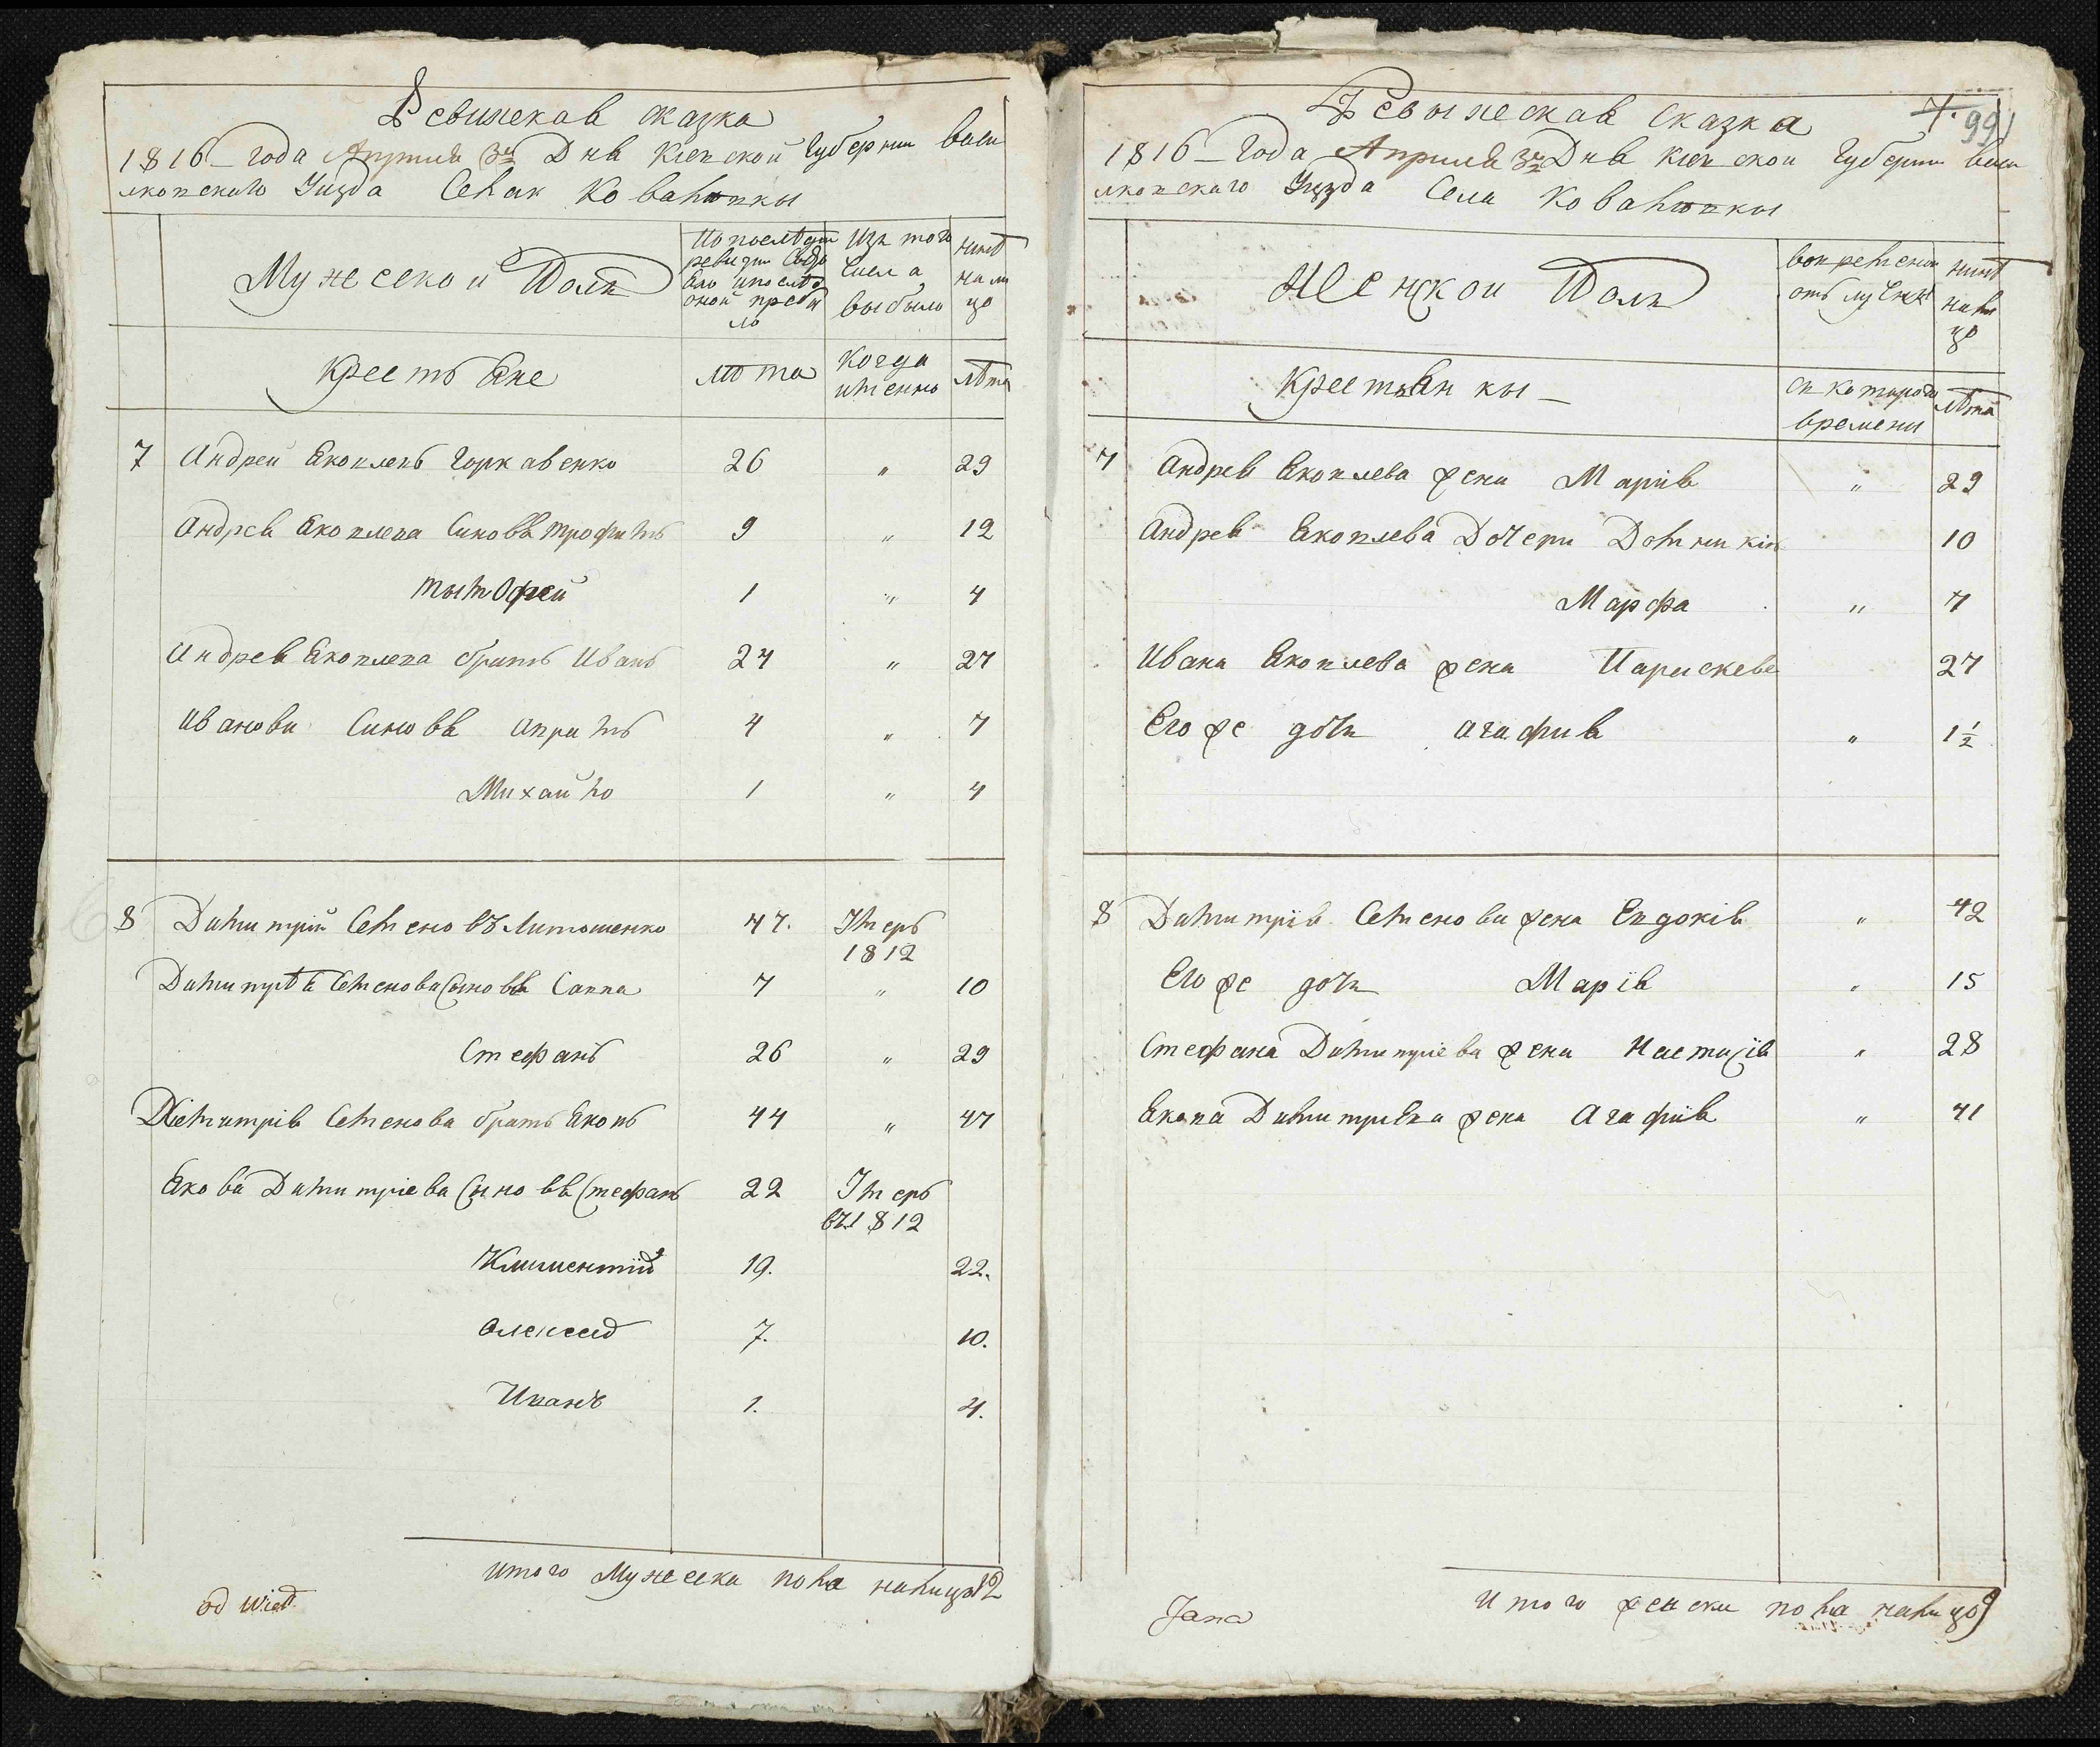 Ревижскав сказка
1816 года Апрыля 3го Днв Кіевской Губернии васи
лковского Уизда Села Ковалювкы
Мужеской Полъ
По последней ревизии состояло и после оной прибыло
Изъ того числа выбыло
ныне на лицо
Крестьяне
лета
Когда именно
лета
7 Андрей Яковлевъ Горкавенко 26 „ 29
Андрея Яковлева Синовя Трофимъ 9 „ 12
Тытофей 1 „ 4
Андрея Яковлева братъ Иванъ 24 „ 27
Иванови Синовя Апримъ 4 „ 7
Михайло 1 „ 4
8 Димитрій Семеновъ Литошенко 47. Умеръ
1812
Димитрія Семенова Сынове Савва 7 „ 10
Стефанъ 26 „ 29
Диемитрія Семенова братъ Яковъ 44 „ 47
Якова Димитріева Сыновя Стефанъ 22 Умеръ
въ 1812
Климентий 19. 22.
Олексей 7. 10.
Иванъ 1. 4.
итого Мужеска пола налицо 12
od Wiett
Ревыжская сказка
7. 99
1816 Года Апрыля 3го Дня Кіевской Губернии васи
лковского Уизда Села Ковалювкы
Женской Полъ
во временной отлучки
ныне налицо
Крестьянкы
съ которого времени
лета
7 Андрея Яковлева жена Марія „ 29
Андрея Яковлева Дочери Домникія 10
Марфа „ 7
Ивана Яковлева жена Параскева 27
Его же дочь Агафия „ 1 1/2
8 Димитрія Семенова жена Евдокія „ 42
Его же дочь Марія „ 15
Стефана Димитріева жена Настасія „ 28
Якова Димитриева жена Агафія „ 41
Итого женска пола налицо 9
Jana